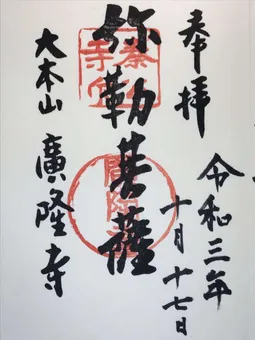 奉拝
令和三年
十月十七日
弥勒菩薩
大本山 廣隆寺